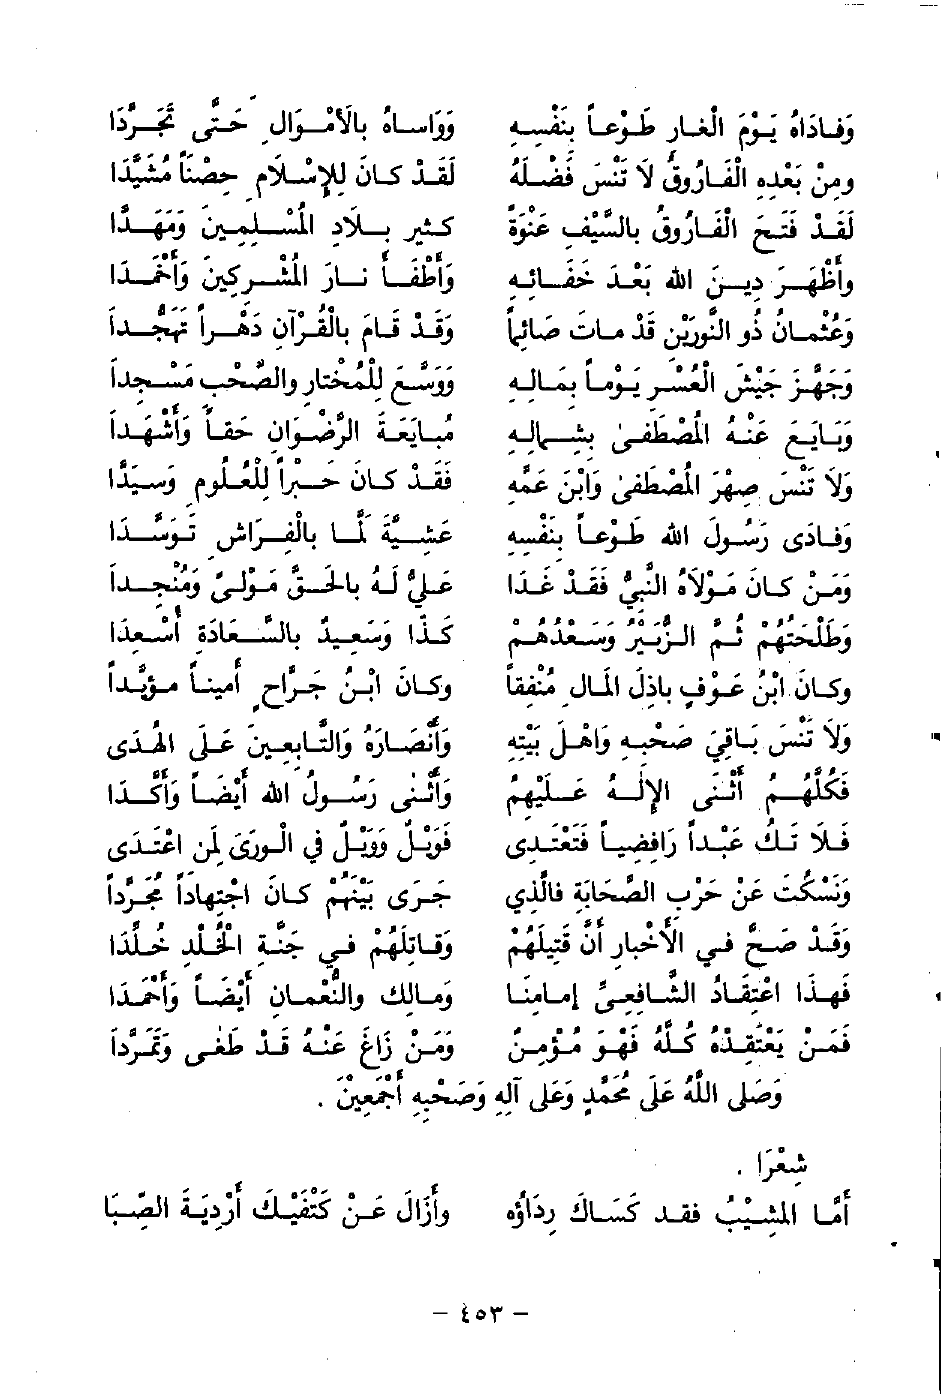 وَفَادَاهُ يَوْمَ الْغَارِ طَوْعاً بِنَفْسِهِ وَوَاسَاهُ بِالأَمْوَالِ حَتَّى تَجَرَّدَا
وَمِنْ بَعْدِهِ الْفَارُوقُ لَا تَنْسَ فَضْلَهُ لَقَدْ كَانَ لِلإِسْلَامِ حِصْناً مُشَيَّدَا
لَقَدْ فَتَحَ الْفَارُوقُ بِالسَّيْفِ عَنْوَةً كَثِيرَ بِلَادِ الْمُسْلِمِينَ وَمَهَّدَا
وَأَظْهَرَ دِينَ اللهِ بَعْدَ خَفَائِهِ وَأَطْفَأَ نَارَ الْمُشْرِكِينَ وَأَخْمَدَا
وَعُثْمَانُ ذُو النُّورَيْنِ قَدْ مَاتَ صَائِماً وَقَدْ قَامَ بِالْقُرْآنِ دَهْراً تَهَجُّدَاً
وَجَهَّزَ جَيْشَ الْعُسْرِ يَوْماً بِمَالِهِ وَوَسَّعَ لِلْمُخْتَارِ وَالصَّحْبِ مَسْجِداً
وَبَايَعَ عَنْهُ الْمُصْطَفَى بِشِمَالِهِ مُبَايَعَةَ الرِّضْوَانِ حَقاً وَأَشْهَدَا
وَلَا تَنْسَ صِهْرَ الْمُصْطَفَى وَابْنَ عَمِّهِ فَقَدْ كَانَ حَبْراً لِلْعُلُومِ وَسَيِّدَا
وَفَادَى رَسُولَ اللهِ طَوْعاً بِنَفْسِهِ عَشِيَّةَ لَمَّا بِالْفِرَاشِ تَوَسَّدَا
وَمَنْ كَانَ مَوْلَاهُ النَّبِيُّ فَقَدْ غَدَا عَلِيٌّ لَهُ بِالْحَقِّ مَوْلىً وَمُنْجِداً
وَطَلْحَتُهُمْ ثُمَّ الزُّبَيْرُ وَسَعْدُهُمْ كَذَا وَسَعِيدٌ بِالسَّعَادَةِ أُسْعِدَا
وكَانَ ابْنُ عَوْفٍ بَاذِلَ الْمَالِ مُنْفِقاً وكَانَ ابْنُ جَرَّاحٍ أَمِيناً مؤيَّداً
وَلَا تَنْسَ بَاقِيَ صَحْبِهِ وَاهْلَ بَيْتِهِ وَأَنْصَارَهُ وَالتَّابِعِينَ عَلَى الْهُدَى
فَكُلُّهُمُ أَثْنَى الإِلَهُ عَلَيْهِمُ وَأَثْنَى رَسُولُ اللهِ أَيْضاً وَأَكَّدَا
فَلَا تَكُ عَبْداً رَافِضِياً فَتَعْتَدِي فَوَيْلٌ وَوَيْلٌ فِي الْوَرَى لِمَنِ اعْتَدَى
وَنَسْكُتُ عَنْ حَرْبِ الصَّحَابَةِ فَالَّذِي جَرَى بَيْنَهُمْ كَانَ اجْتِهَاداً مُجَرَّداً
وَقَدْ صَحَّ فِي الأَخْبَارِ أَنَّ قَتِيلَهُمْ وَقَاتِلَهُمْ فِي جَنَّةِ الْخُلْدِ خُلِّدَا
فَهَذَا اعْتِقَادُ الشَّافِعِيِّ إِمَامِنَا وَمَالِكَ وَالنُّعْمَانِ أَيْضاً وَأَحْمَدَا
فَمَنْ يَعْتَقِدْهُ كُلَّهُ فَهْوَ مُؤْمِنٌ وَمَنْ زَاغَ عَنْهُ قَدْ طَغَى وَتَمَرَّدَاً
وَصَلى اللهُ عَلَى مُحَمَّدٍ وَعَلى آلِهِ وَصَحْبِهِ أَجْمَعِيْنَ .
شِعْرَا .
أَمَّا المَشِيْبُ فقد كَسَاكَ رِدَاؤُه وأَزَالَ عَنْ كَتْفَيْكَ أَرْدِيَةَ الصِّبَا
– ٤٥٣ –